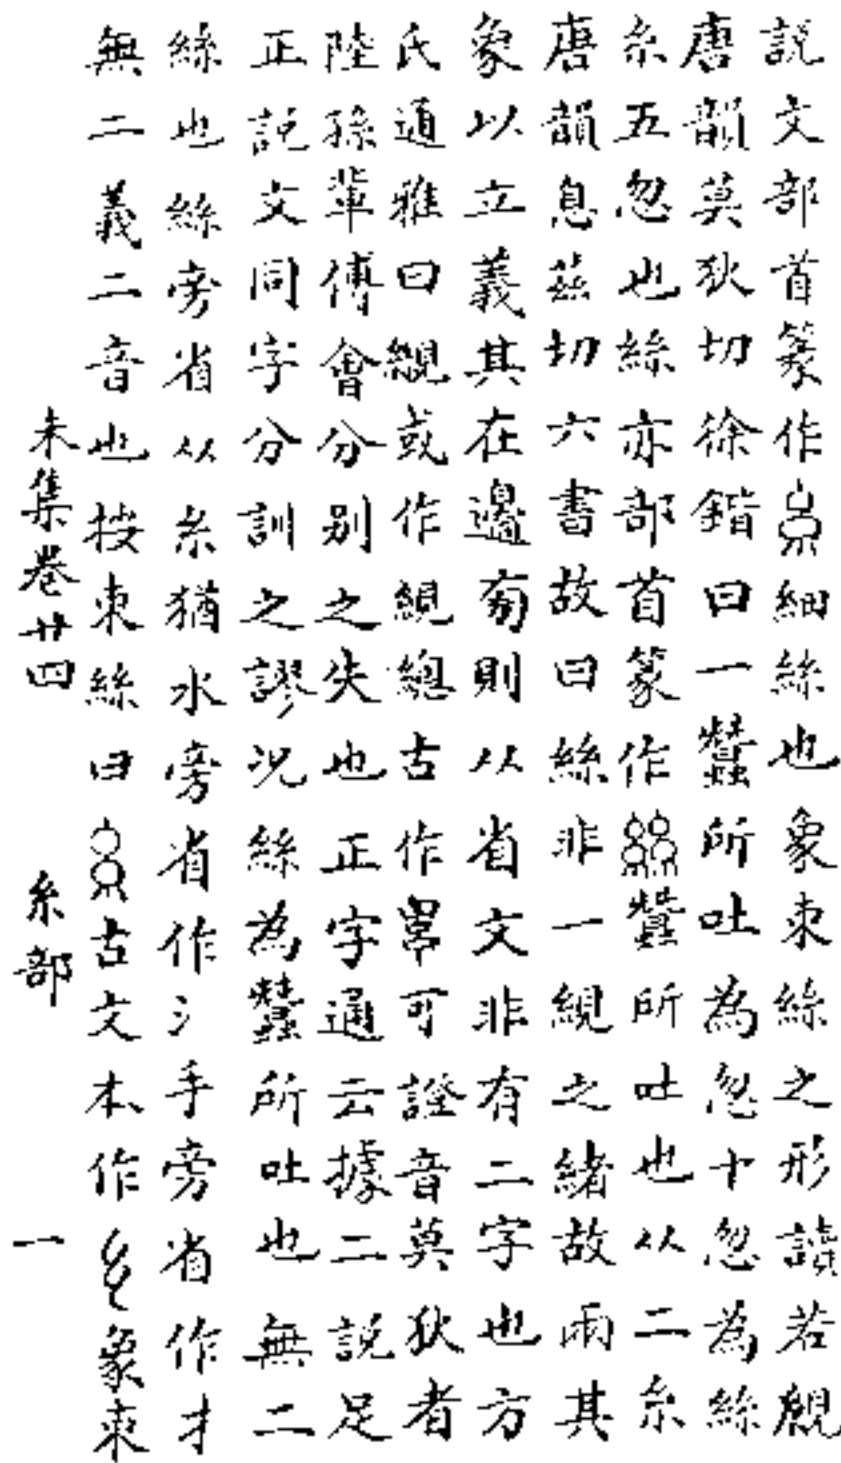 説文部首篆作糸細絲也象束絲之形讀若覛
唐韻莫狄切徐鍇曰一蠶所吐為忽十忽為絲
糸五忽也絲亦部首篆作絲蠶所吐也从二糸
唐韻息茲切六書故曰絲非一緄之緒故兩其
象以立義其在邊旁則从省文非有二字也方
氏通雅曰緄或作緄總古作𦃃可證音莫狄者
陸孫輩傅會分别之失也正字通云據二説足
正説文同字分訓之謬况絲為蠶所吐也無二
絲也絲旁省从糸猶水旁省作氵手旁省作扌
無二義二音也按束絲曰糸古文本作幺象束
未集卷廿四 糸部 一